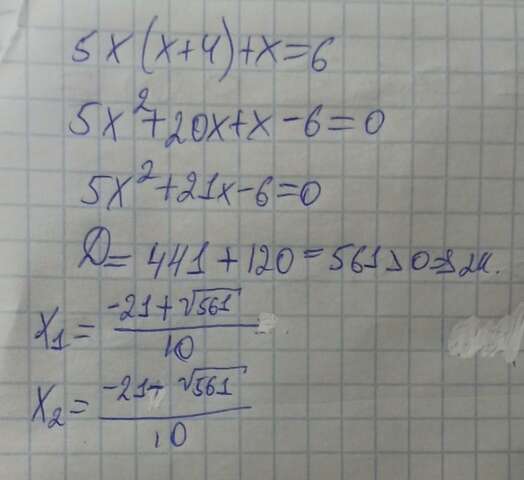 5x(x+4)+x=6
5x²+20x+x-6=0
5x²+21x-6=0
D=441+120=561>0⇒2к.
x₁=(-21+√561)/10
x₂=(-21-√561)/10